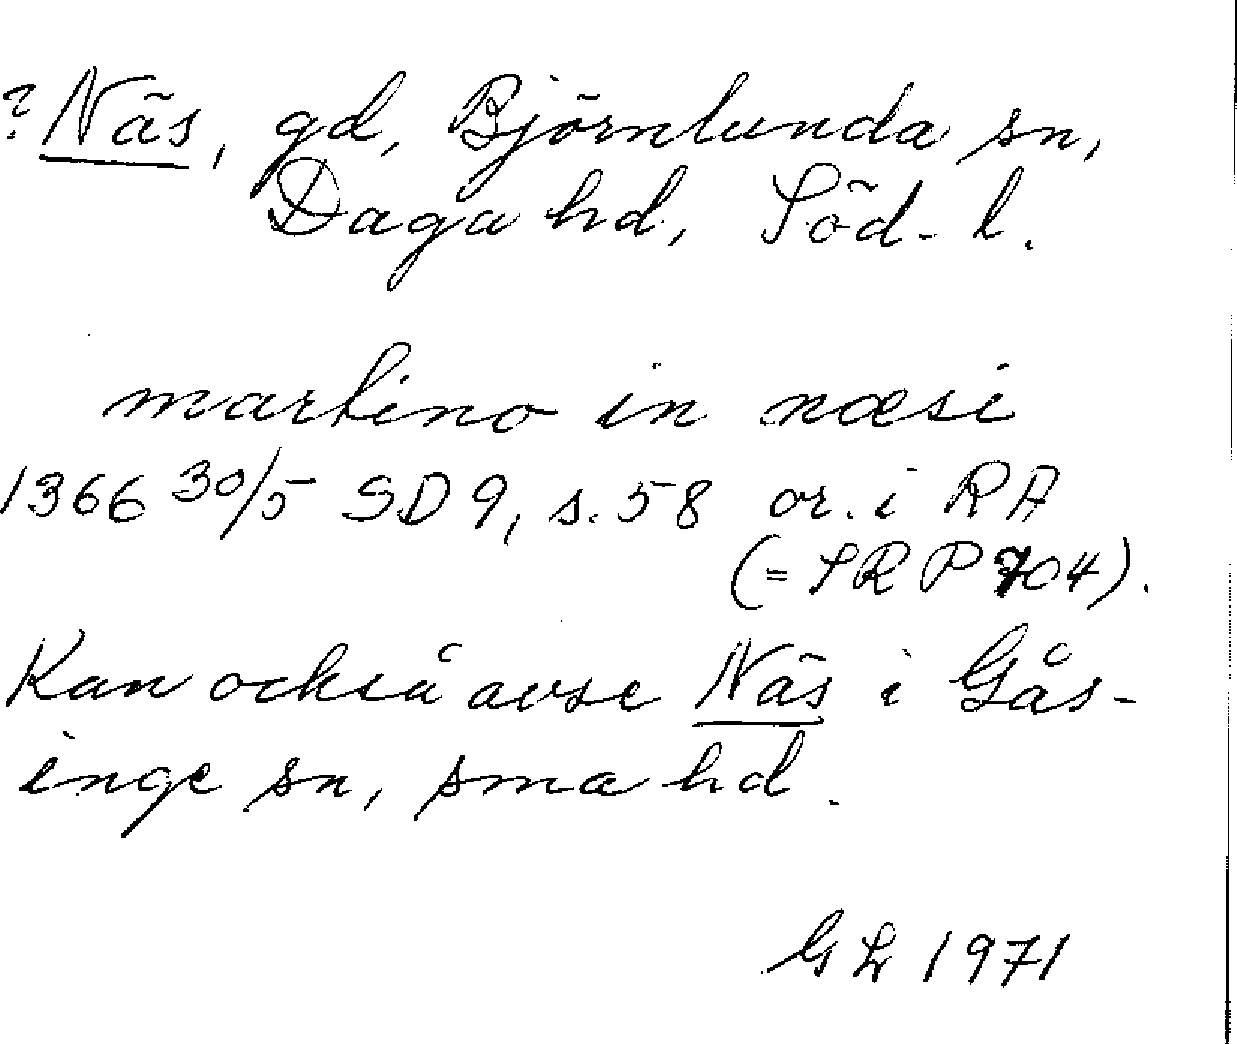 ? Näs, gd, Björnlunda sn,
Daga hd, Söd. l.
martino in næsi
1366 30/5 SD 9, s. 58 or. i RA
(= SRP 704).
Kan också avse Näs i Gås-
inge sn, sma hd.
GL 1971